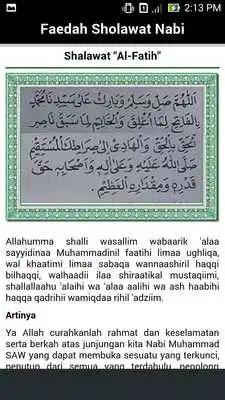 2:13 PM
Faedah Sholawat Nabi
Shalawat "Al-Fatih"
اَللّٰهُمَّ صَلِّ وَسَلِّمْ وَبَارِكْ عَلَى سَيِّدِنَا مُحَمَّدٍ
الْفَاتِحِ لِمَا اُغْلِقَ وَالْخَاتِمِ لِمَا سَبَقَ نَاصِرِ
الْحَقِّ بِالْحَقِّ وَالْهَادِيْ اِلَى صِرَاطِكَ الْمُسْتَقِيْمِ
صَلَّى اللهُ عَلَيْهِ وَعَلَى اٰلِهِ وَاَصْحَابِهِ حَقَّ
قَدْرِهِ وَمِقْدَارِهِ الْعَظِيْمِ
Allahumma shalli wasallim wabaarik 'alaa
sayyidinaa Muhammadinil faatihi limaa ughliqa,
wal khaatimi limaa sabaqa wannaashiril haqqi
bilhaqqi, walhaadii ilaa shiraatikal mustaqiimi,
shallallaahu 'alaihi wa 'alaa aalihi wa ash haabihi
haqqa qadrihii wamiqdaa rihil 'adziim.
Artinya
Ya Allah curahkanlah rahmat dan keselamatan
serta berkah atas junjungan kita Nabi Muhammad
SAW yang dapat membuka sesuatu yang terkunci,
penutup dari semua yang terdahulu, penolong